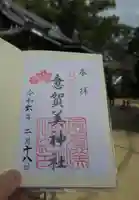 奉拝
意賀美神社
令和六年 二月十八日